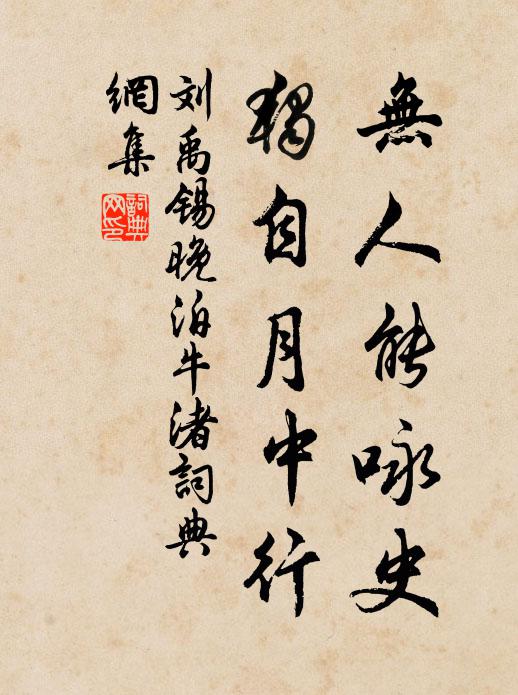 無人能咏史
獨自月中行
刘禹锡晚泊牛渚詞典
網集
詞典
网印